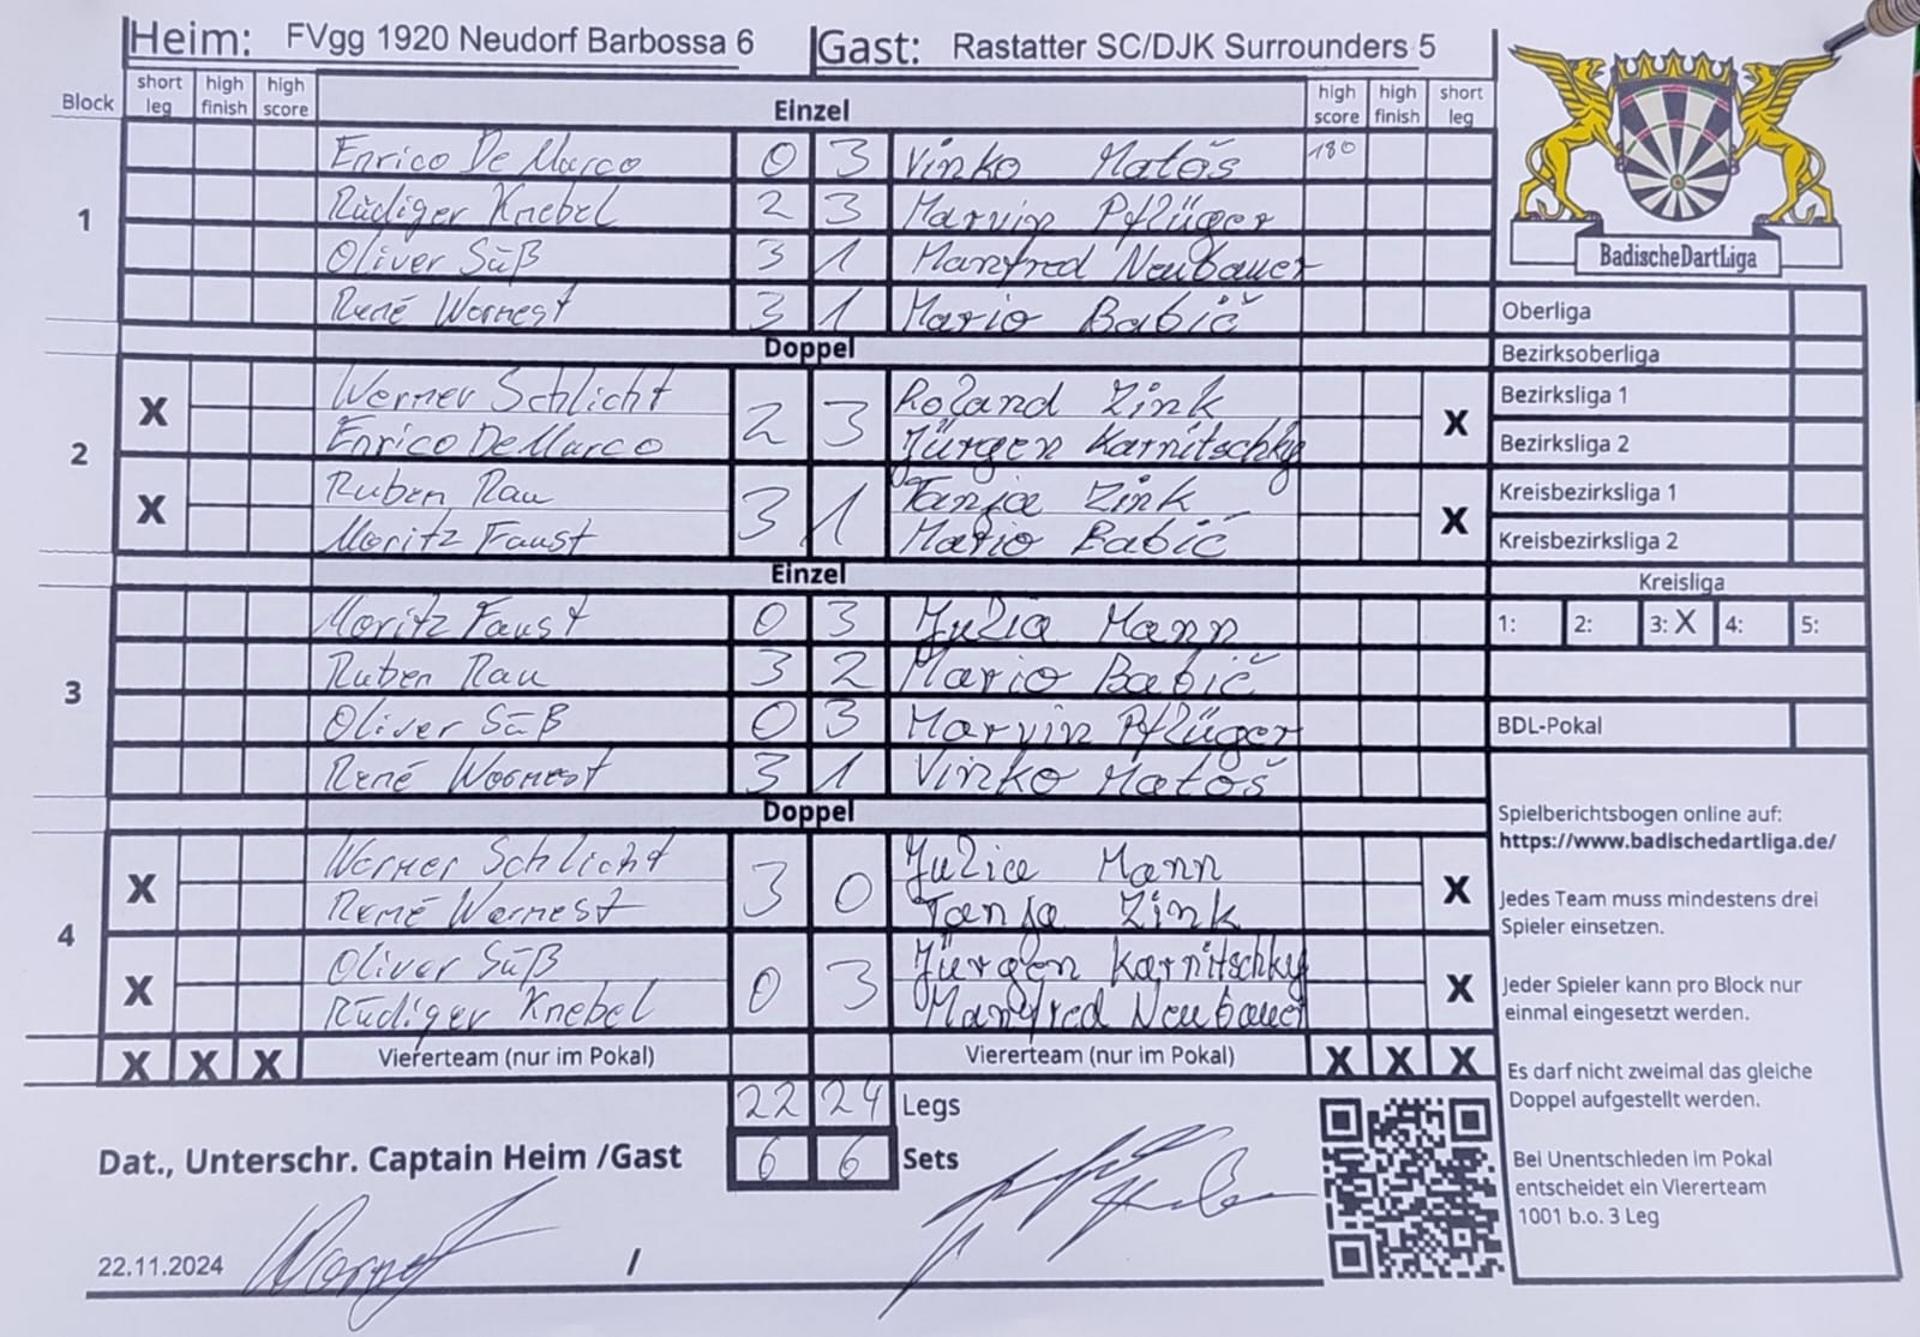 Heim: FVgg 1920 Neudorf Barbossa 6 Gast: Rastatter SC/DJK Surrounders 5
Block short leg high finish high score Einzel high score high finish short leg
1
Enrico De Marco 0 3 Vinko Matoš 180
Rüdiger Knebel 2 3 Marvin Pflüger
Oliver Süß 3 1 Manfred Neubauer
René Wernest 3 1 Mario Babič
Doppel
2
X Werner Schlicht 2 3 Roland Zink X
Enrico De Marco Jürgen Karnitschky
X Ruben Rau 3 1 Tanja Zink X
Moritz Faust Mario Babič
Einzel
3
Moritz Faust 0 3 Julia Mann
Ruben Rau 3 2 Mario Babič
Oliver Süß 0 3 Marvin Pflüger
René Wernest 3 1 Vinko Matoš
Doppel
4
X Werner Schlicht 3 0 Julia Mann X
René Wernest Tanja Zink
X Oliver Süß 0 3 Jürgen Karnitschky X
Rüdiger Knebel Manfred Neubauer
X X X Viererteam (nur im Pokal) Viererteam (nur im Pokal) X X X
22 24 Legs
Dat., Unterschr. Captain Heim /Gast 6 6 Sets
22.11.2024 /
BadischeDartLiga
Oberliga
Bezirksoberliga
Bezirksliga 1
Bezirksliga 2
Kreisbezirksliga 1
Kreisbezirksliga 2
Kreisliga
1: 2: 3: X 4: 5:
BDL-Pokal
Spielberichtsbogen online auf:
https://www.badischedartliga.de/
Jedes Team muss mindestens drei
Spieler einsetzen.
Jeder Spieler kann pro Block nur
einmal eingesetzt werden.
Es darf nicht zweimal das gleiche
Doppel aufgestellt werden.
Bei Unentschieden im Pokal
entscheidet ein Viererteam
1001 b.o. 3 Leg